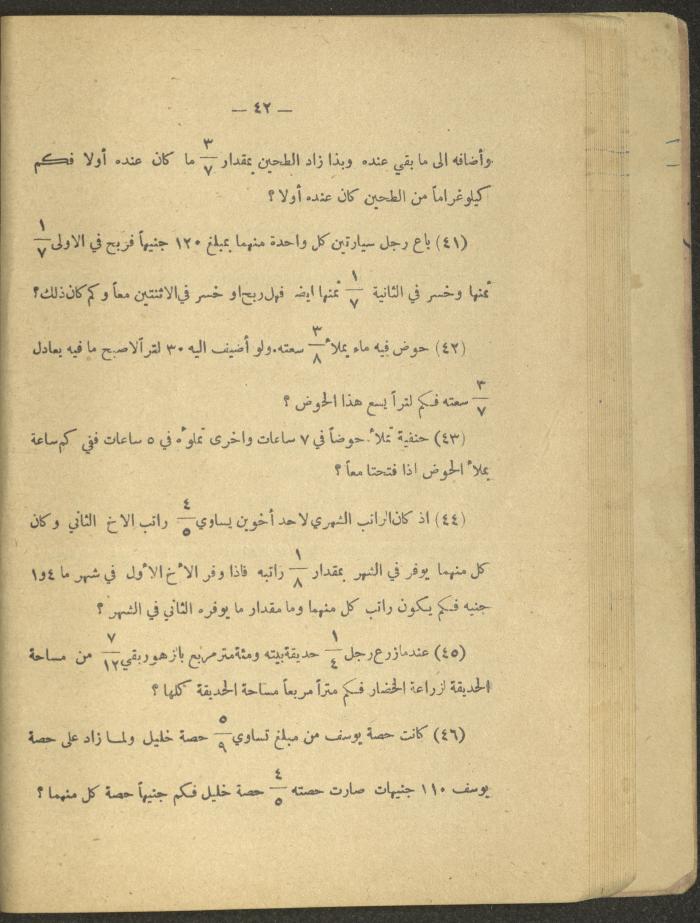 — ٤٢ —
وأضافه الى ما بقي عنده وبذا زاد الطحين بمقدار ٣/٧ ما كان عنده أولا فكم
كيلوغراماً من الطحين كان عنده أولا ؟
(٤١) باع رجل سيارتين كل واحدة منهما بمبلغ ١٢٠ جنيهاً فربح في الاولى ١/٧
ثمنها وخسر في الثانية ١/٧ ثمنها ايضـ فهل ربح او خسر في الاثنتين معاً وكم كان ذلك؟
(٤٢) حوض فيه ماء يملأ ٣/٨ سعته. ولو أضيف اليه ٣٠ لتراً لاصبح ما فيه يعادل
٣/٧ سعته فكم لتراً يسع هذا الحوض ؟
(٤٣) حنفية تملأ حوضاً في ٧ ساعات واخرى تملؤه في ٥ ساعات ففي كم ساعة
يملأ الحوض اذا فتحتا معاً ؟
(٤٤) اذ كان الراتب الشهري لاحد أخوين يساوي ٤/٥ راتب الاخ الثاني وكان
كل منهما يوفر في الشهر بمقدار ١/٨ راتبه فاذا وفر الأخ الأول في شهر ما ٤و١
جنيه فكم يكون راتب كل منهما وما مقدار ما يوفره الثاني في الشهر ؟
(٤٥) عندما زرع رجل ١/٤ حديقة بيته ومئة متر مربع بازهور بقي ٧/١٢ من مساحة
الحديقة لزراعة الخضار فكم متراً مربعاً مساحة الحديقة كلها ؟
(٤٦) كانت حصة يوسف من مبلغ تساوي ٥/٩ حصة خليل ولما زاد على حصة
يوسف ١١٠ جنيهات صارت حصته ٤/٥ حصة خليل فكم جنيهاً حصة كل منهما ؟